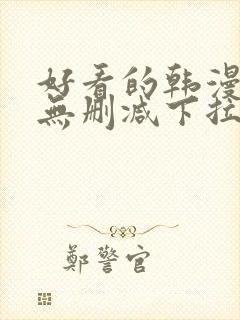 好看的韩漫
無删减下拉
鄭警官